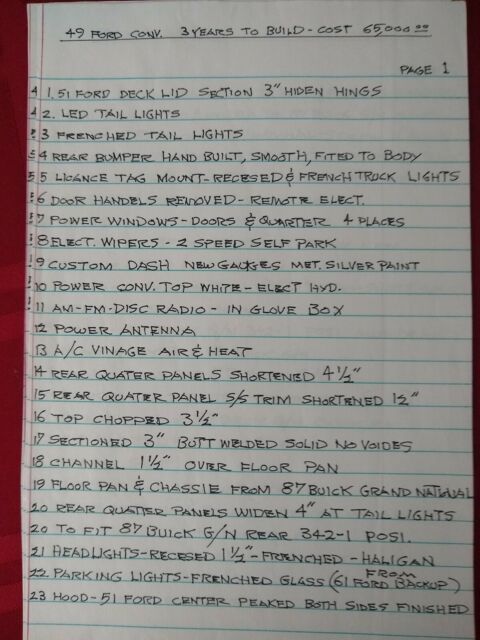 49 FORD CONV. 3 YEARS TO BUILD - COST 65,000.00
PAGE 1
1. 51 FORD DECK LID SECTION 3" HIDEN HINGS
2. LED TAIL LIGHTS
3 FRENCHED TAIL LIGHTS
4 REAR BUMPER HAND BUILT, SMOOTH, FITED TO BODY
5 LICANCE TAG MOUNT - RECESED & FRENCH TRUCK LIGHTS
6 DOOR HANDELS REMOVED - REMOTE ELECT.
7 POWER WINDOWS - DOORS & QUARTER 4 PLACES
8 ELECT. WIPERS - 2 SPEED SELF PARK
9 CUSTOM DASH NEW GAUGES MET. SILVER PAINT
10 POWER CONV. TOP WHITE - ELECT HYD.
11 AM-FM-DISC RADIO - IN GLOVE BOX
12 POWER ANTENNA
13 A/C VINAGE AIR & HEAT
14 REAR QUATER PANELS SHORTENED 4 1/2"
15 REAR QUATER PANEL S/S TRIM SHORTENED 12"
16 TOP CHOPPED 3 1/2"
17 SECTIONED 3" BUTT WELDED SOLID NO VOIDES
18 CHANNEL 1 1/2" OVER FLOOR PAN
19 FLOOR PAN & CHASSIE FROM 87 BUICK GRAND NATIONAL
20 REAR QUATER PANELS WIDEN 4" AT TAIL LIGHTS
20 TO FIT 87 BUICK G/N REAR 342-1 POSI.
21 HEADLIGHTS - RECESED 1 1/2" - FRENCHED - HALIGAN
22. PARKING LIGHTS - FRENCHED GLASS (FROM 61 FORD BACKUP)
23 HOOD - 51 FORD CENTER PEAKED BOTH SIDES FINISHED